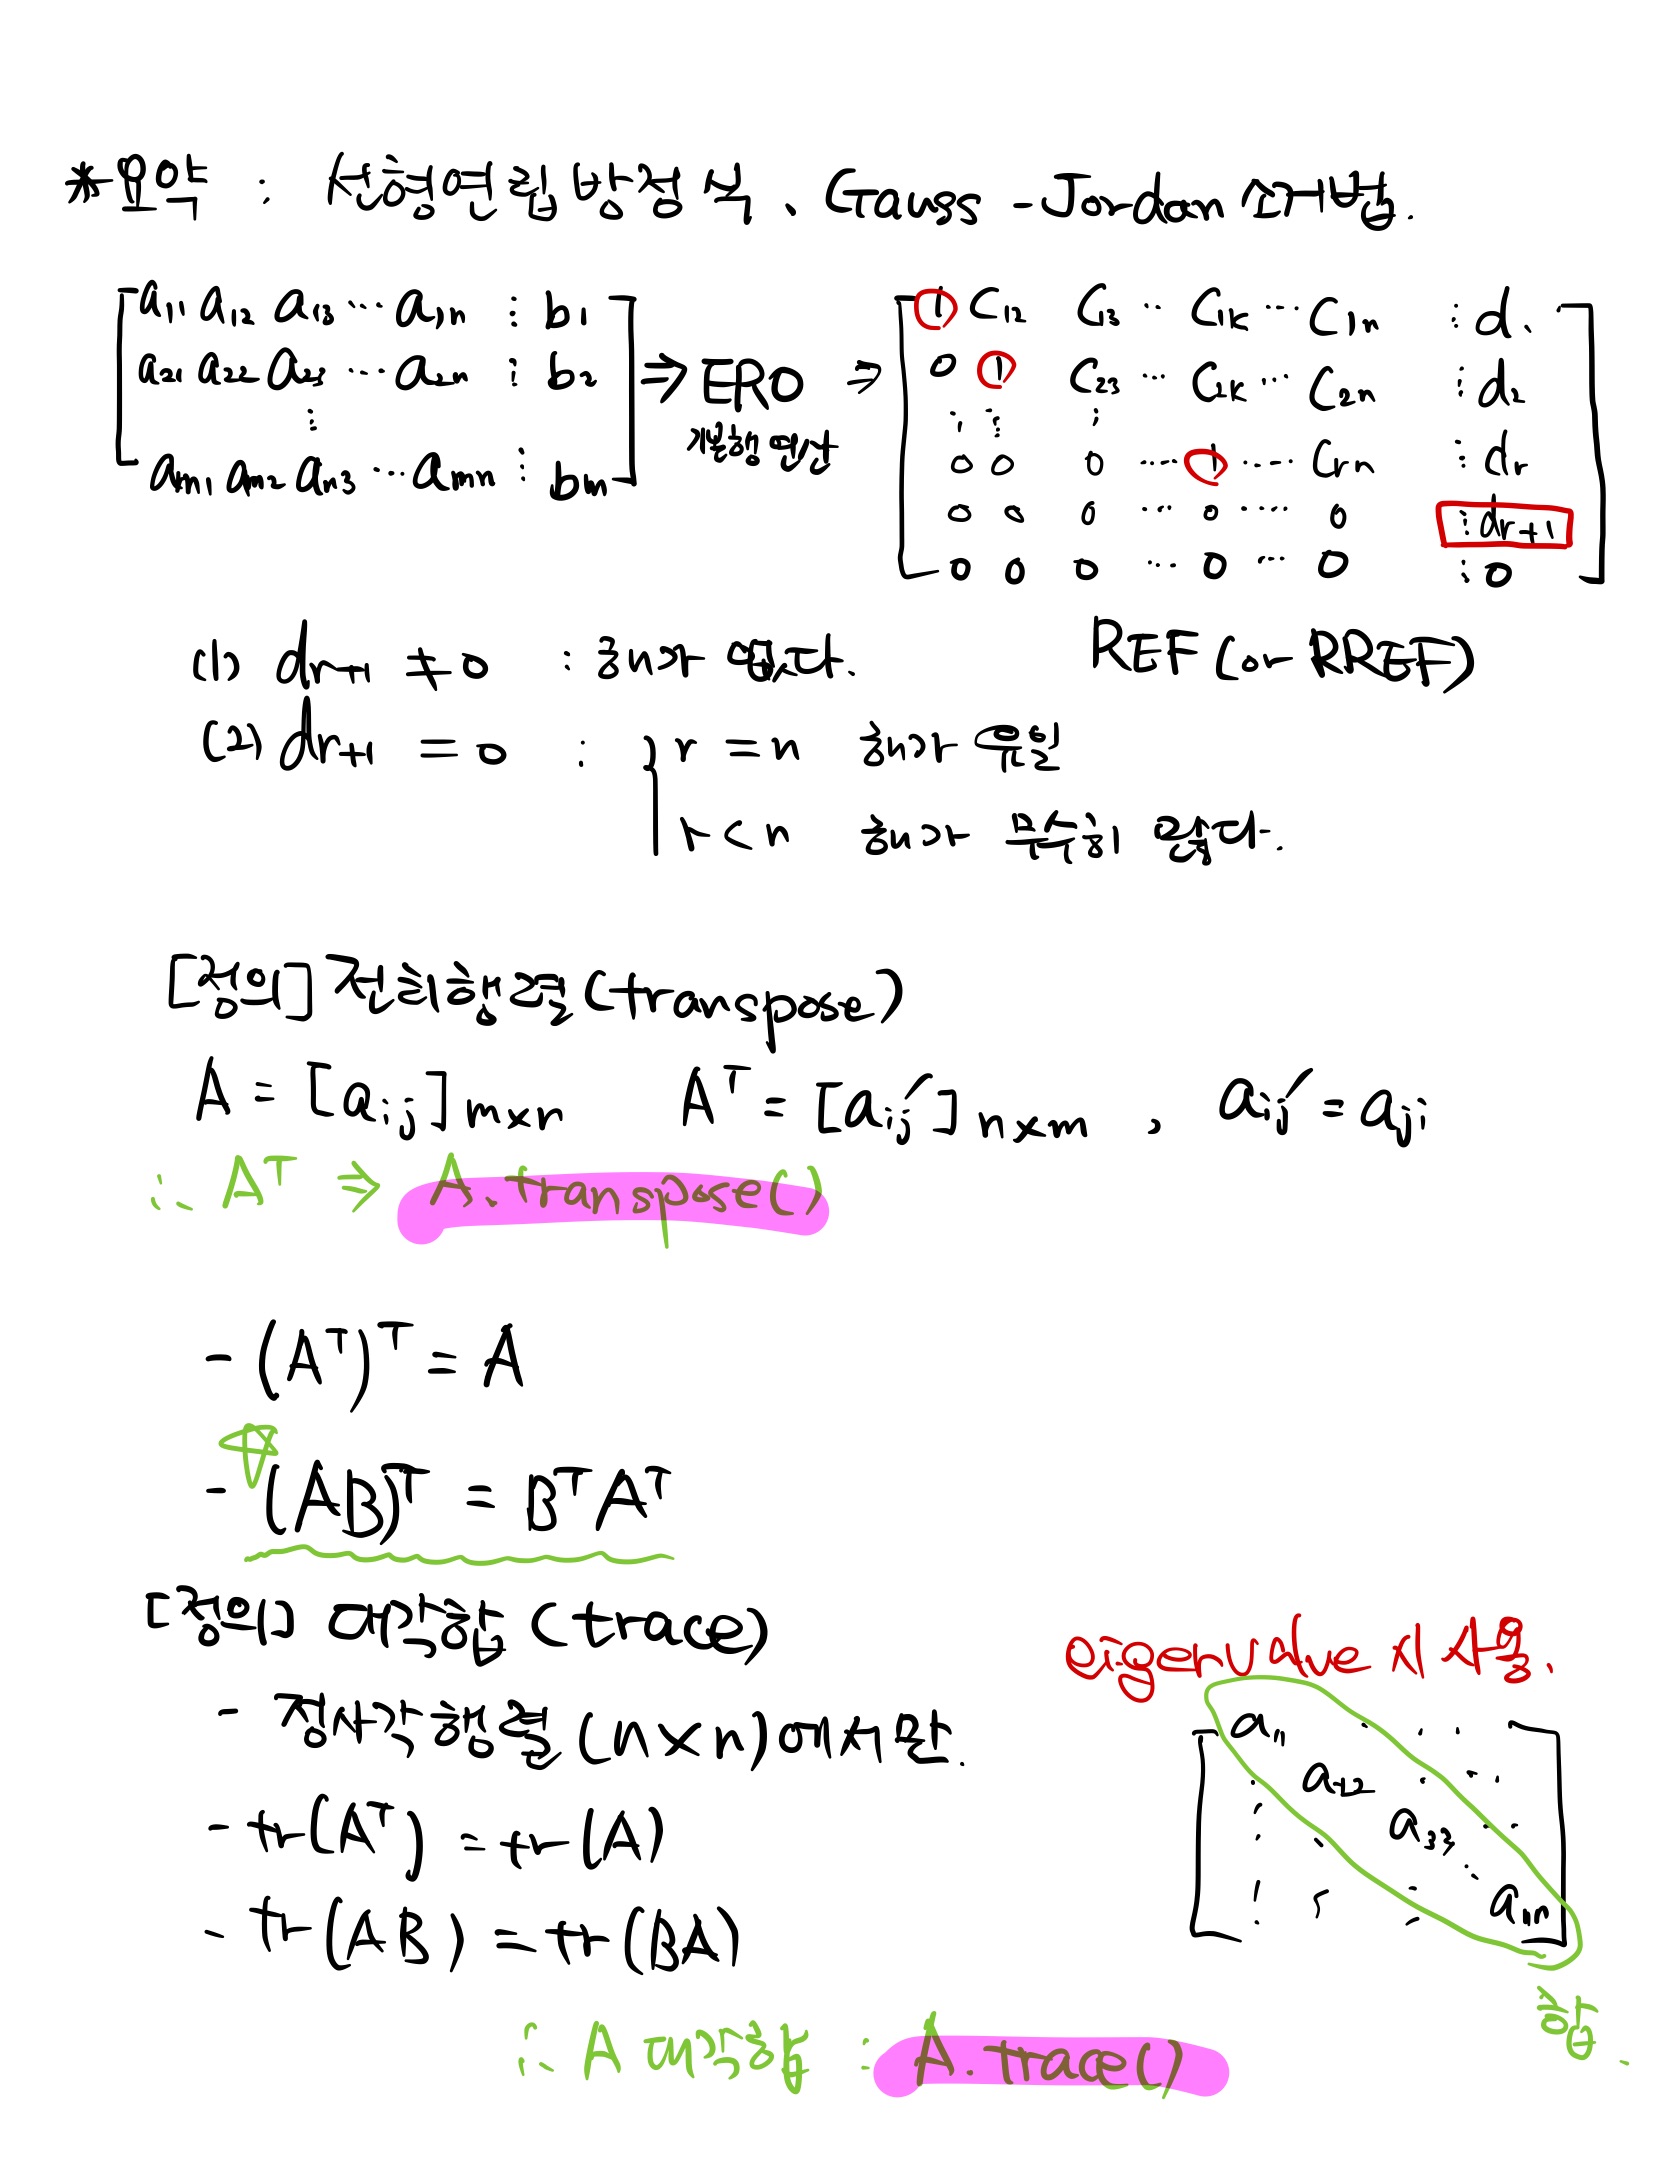 *요약 : 선형연립방정식, Gauss - Jordan 소거법.
a11 a12 a13 ... a1n ⋮ b1
a21 a22 a23 ... a2n ⋮ b2
⋮
am1 am2 an3 ... amn ⋮ bm
⇒ ERO ⇒
기본행 연산
1 C12 C13 ... C1k ... C1n ⋮ d1
0 1 C23 ... C2k ... C2n ⋮ d2
⋮ ⋮ ⋮
0 0 0 ... 1 ... Crn ⋮ dr
0 0 0 ... 0 ... 0 ⋮ dr+1
0 0 0 ... 0 ... 0 ⋮ 0
REF (or RREF)
(1) dr+1 ≠ 0 : 해가 없다.
(2) dr+1 = 0 : { r = n 해가 유일
r < n 해가 무수히 많다.
[정의] 전치행렬 (transpose)
A = [aij]m×n Aᵀ = [aij′]n×m , aij′ = aji
∴ Aᵀ ⇒ A.transpose()
- (Aᵀ)ᵀ = A
- ☆(AB)ᵀ = BᵀAᵀ
[정의] 대각합 (trace)
- 정사각행렬 (n×n)에서만.
- tr(Aᵀ) = tr(A)
- tr(AB) = tr(BA)
eigenvalue 시 사용.
a11 . . .
. a22 . . .
. . a33 . .
. . . ann
합.
∴ A 대각합 : A.trace()